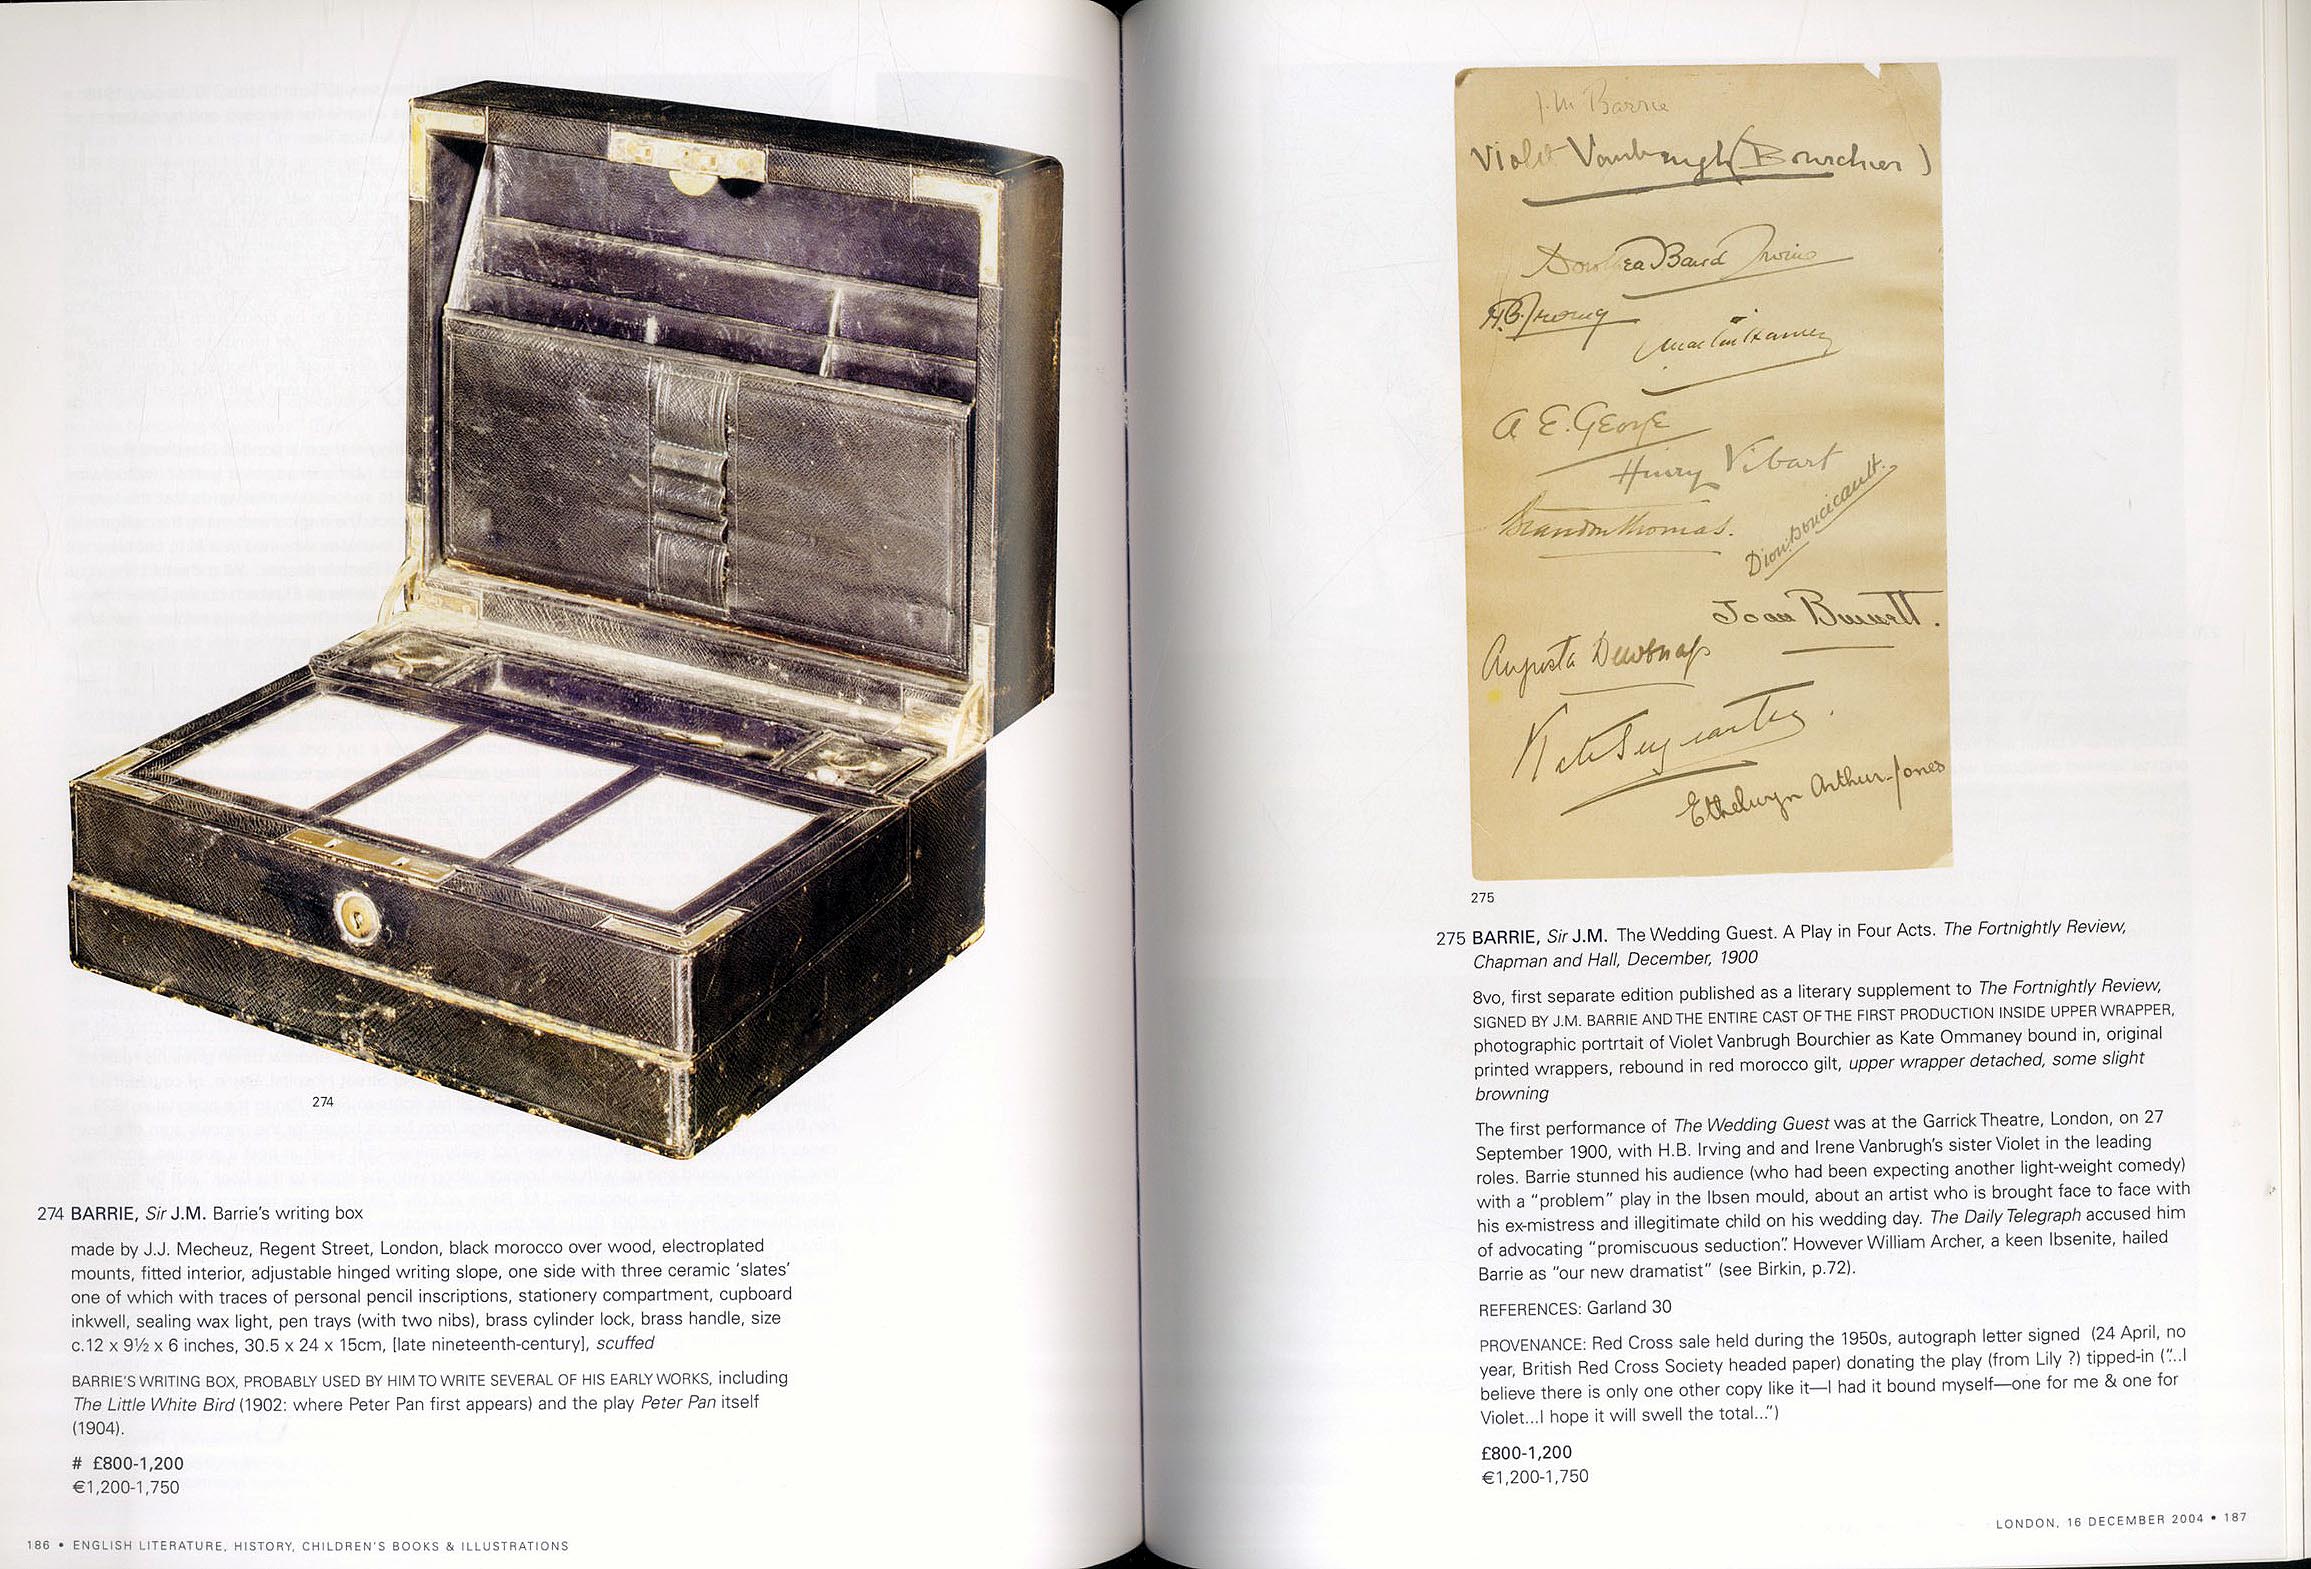 274
274 BARRIE, Sir J.M. Barrie's writing box
made by J.J. Mecheuz, Regent Street, London, black morocco over wood, electroplated
mounts, fitted interior, adjustable hinged writing slope, one side with three ceramic 'slates'
one of which with traces of personal pencil inscriptions, stationery compartment, cupboard
inkwell, sealing wax light, pen trays (with two nibs), brass cylinder lock, brass handle, size
c.12 x 9½ x 6 inches, 30.5 x 24 x 15cm, [late nineteenth-century], scuffed
BARRIE'S WRITING BOX, PROBABLY USED BY HIM TO WRITE SEVERAL OF HIS EARLY WORKS, including
The Little White Bird (1902: where Peter Pan first appears) and the play Peter Pan itself
(1904).
# £800-1,200
€1,200-1,750
186 • ENGLISH LITERATURE, HISTORY, CHILDREN'S BOOKS & ILLUSTRATIONS
J.M Barrie
Violet Vanbrugh (Bourchier)
Dorothea Baird Irving
H.B. Irving
Martin Harvey
A E. George
Henry Vibart
Brandon Thomas.
Dion Boucicault.
Joan Burnett.
Augusta
Kate Sergeantson.
Ethelwyn Arthur-Jones
275
275 BARRIE, Sir J.M. The Wedding Guest. A Play in Four Acts. The Fortnightly Review,
Chapman and Hall, December, 1900
8vo, first separate edition published as a literary supplement to The Fortnightly Review,
SIGNED BY J.M. BARRIE AND THE ENTIRE CAST OF THE FIRST PRODUCTION INSIDE UPPER WRAPPER,
photographic portrtait of Violet Vanbrugh Bourchier as Kate Ommaney bound in, original
printed wrappers, rebound in red morocco gilt, upper wrapper detached, some slight
browning
The first performance of The Wedding Guest was at the Garrick Theatre, London, on 27
September 1900, with H.B. Irving and and Irene Vanbrugh's sister Violet in the leading
roles. Barrie stunned his audience (who had been expecting another light-weight comedy)
with a "problem" play in the Ibsen mould, about an artist who is brought face to face with
his ex-mistress and illegitimate child on his wedding day. The Daily Telegraph accused him
of advocating "promiscuous seduction". However William Archer, a keen Ibsenite, hailed
Barrie as "our new dramatist" (see Birkin, p.72).
REFERENCES: Garland 30
PROVENANCE: Red Cross sale held during the 1950s, autograph letter signed (24 April, no
year, British Red Cross Society headed paper) donating the play (from Lily ?) tipped-in ("...I
believe there is only one other copy like it—I had it bound myself—one for me & one for
Violet...I hope it will swell the total...")
£800-1,200
€1,200-1,750
LONDON, 16 DECEMBER 2004 • 187